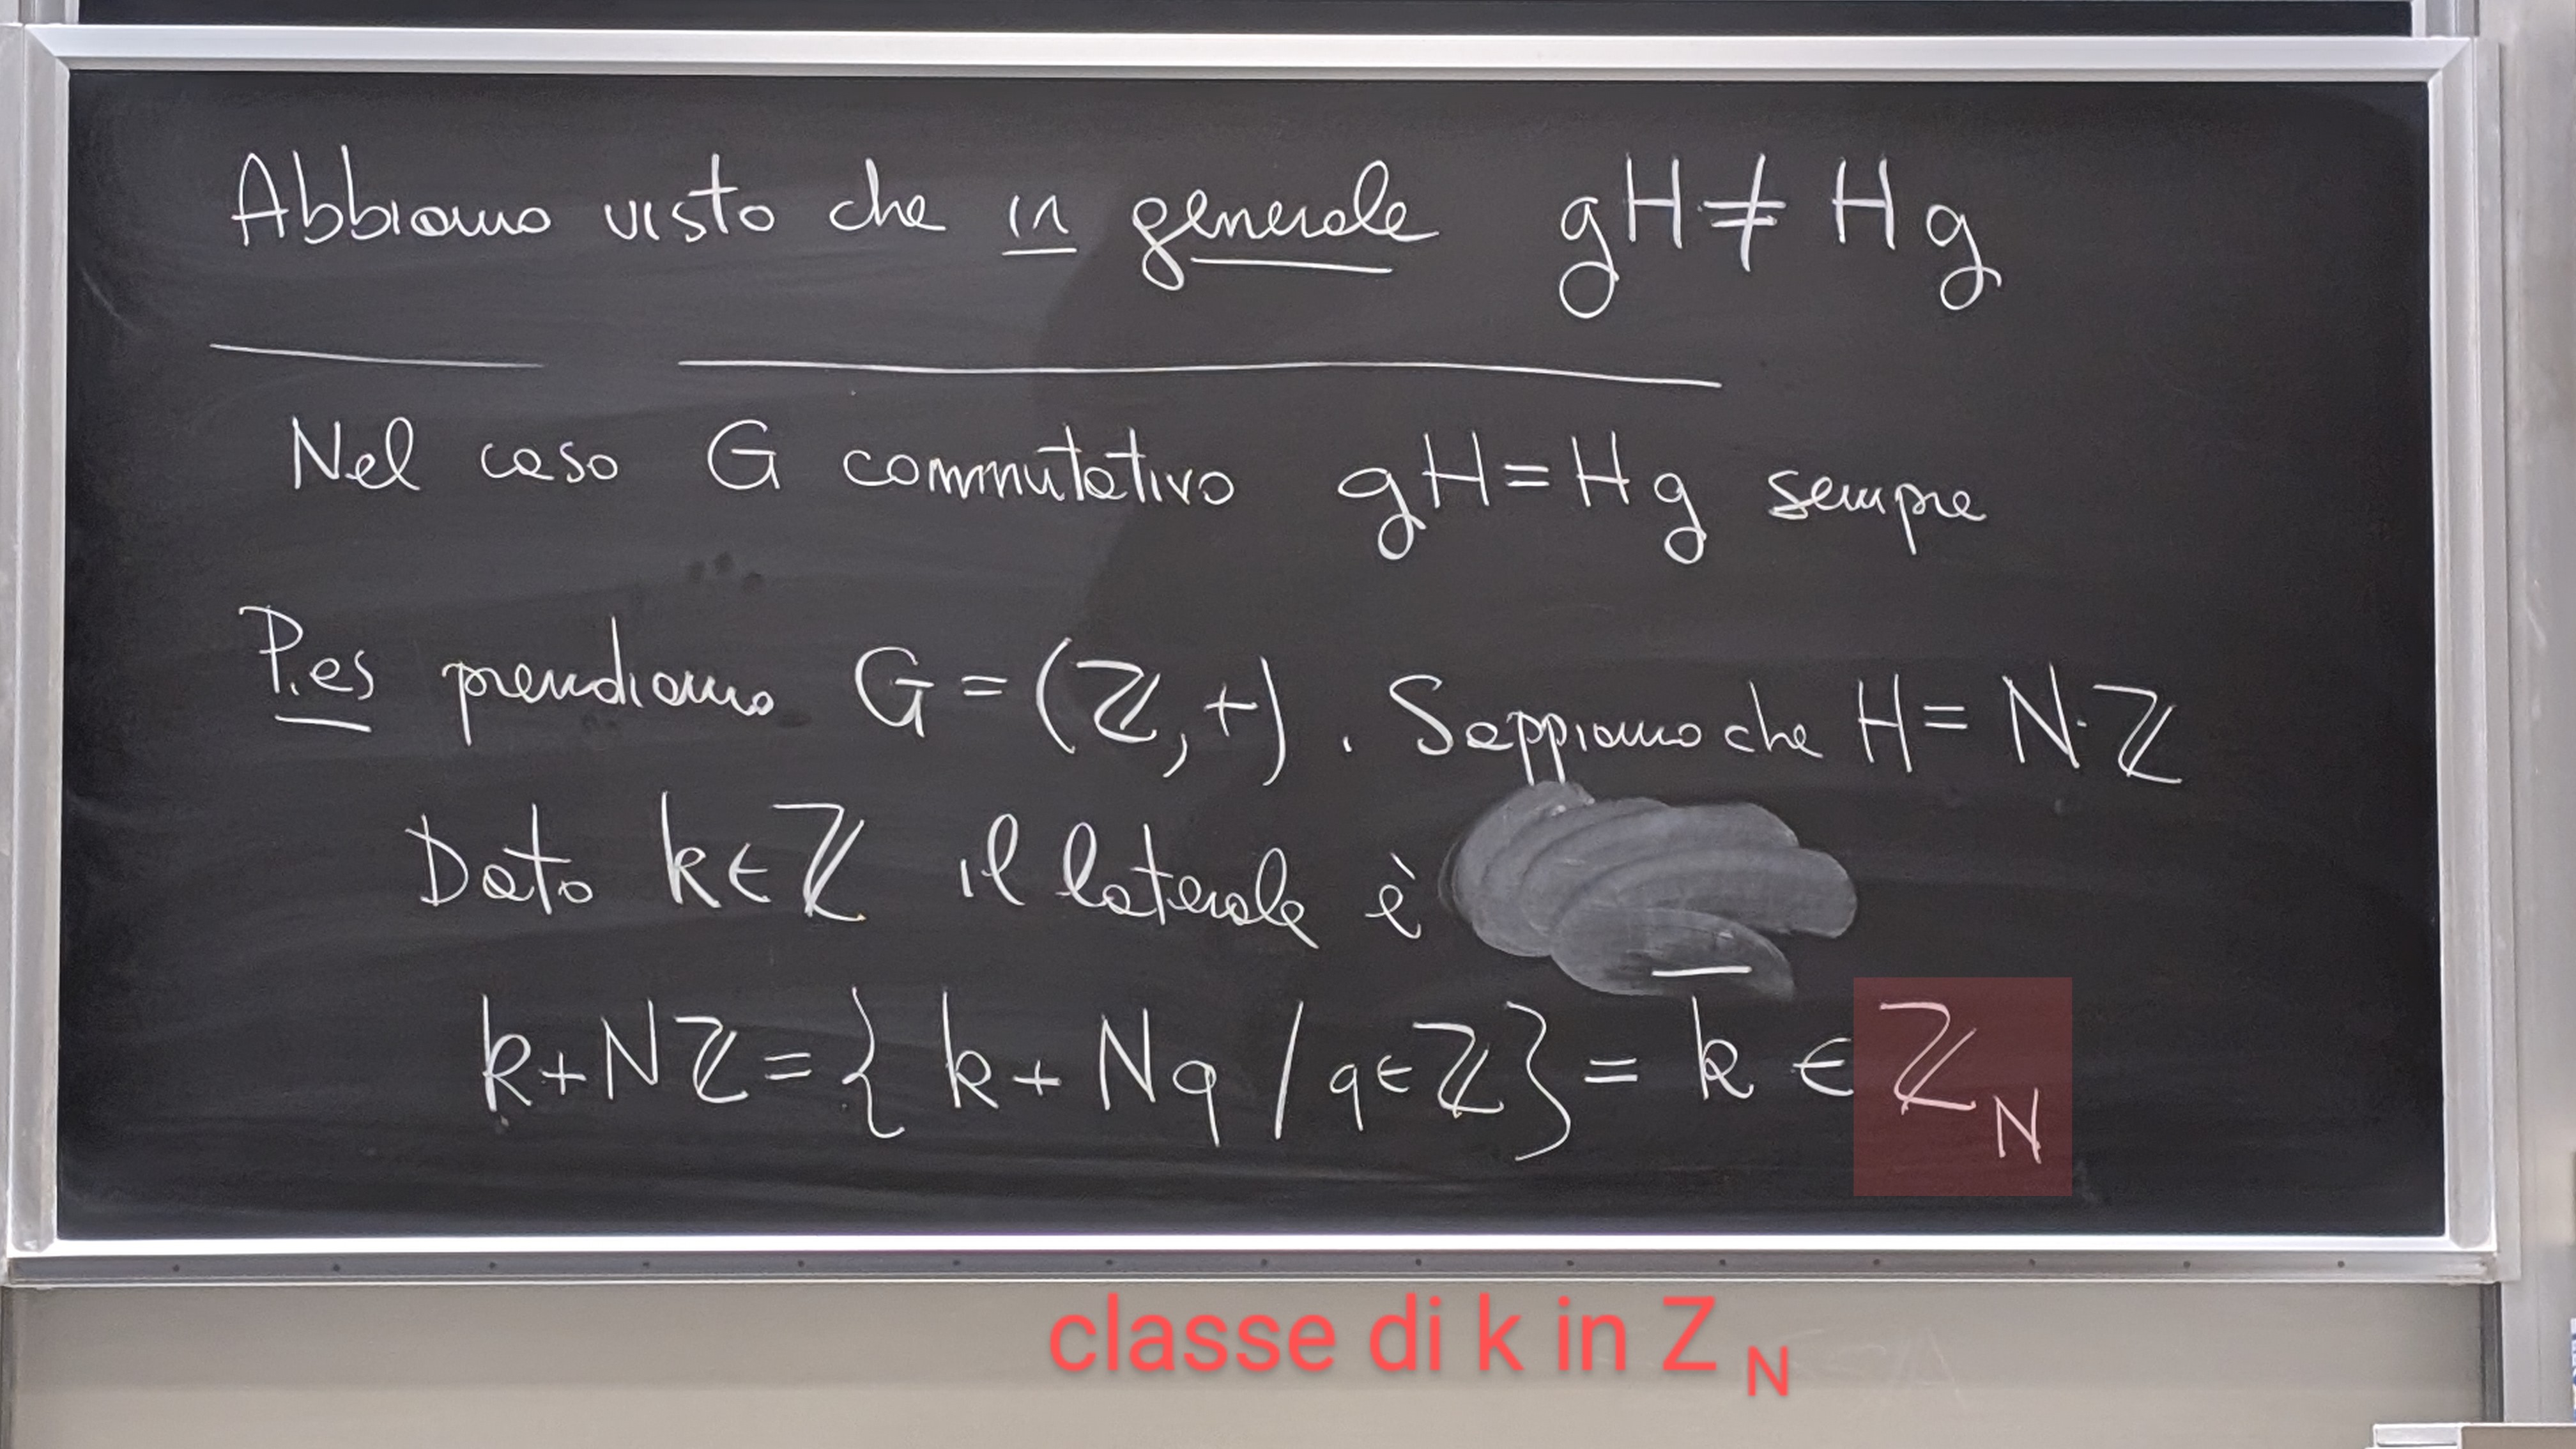 Abbiamo visto che in generale gH ≠ Hg
Nel caso G commutativo gH = Hg sempre
P.es prendiamo G = (ℤ, +) . Sappiamo che H = N·ℤ
Dato k ∈ ℤ il laterale è
k+Nℤ = { k + Nq / q ∈ ℤ } = k̅ ∈ ℤ_N
classe di k in Z N